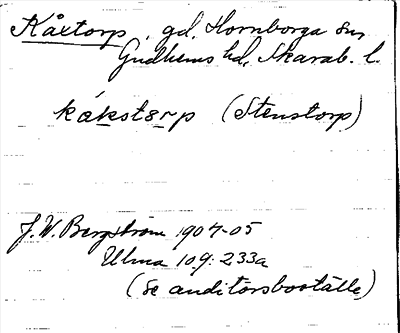 Kåxtorp, gd, Hornborga sn,
Gudhems hd, Skarab. l.
kákstɛrp (Stenstorp)
J. W. Bergström 1904-05
Ulma 109:233a
(se auditörsboställe)